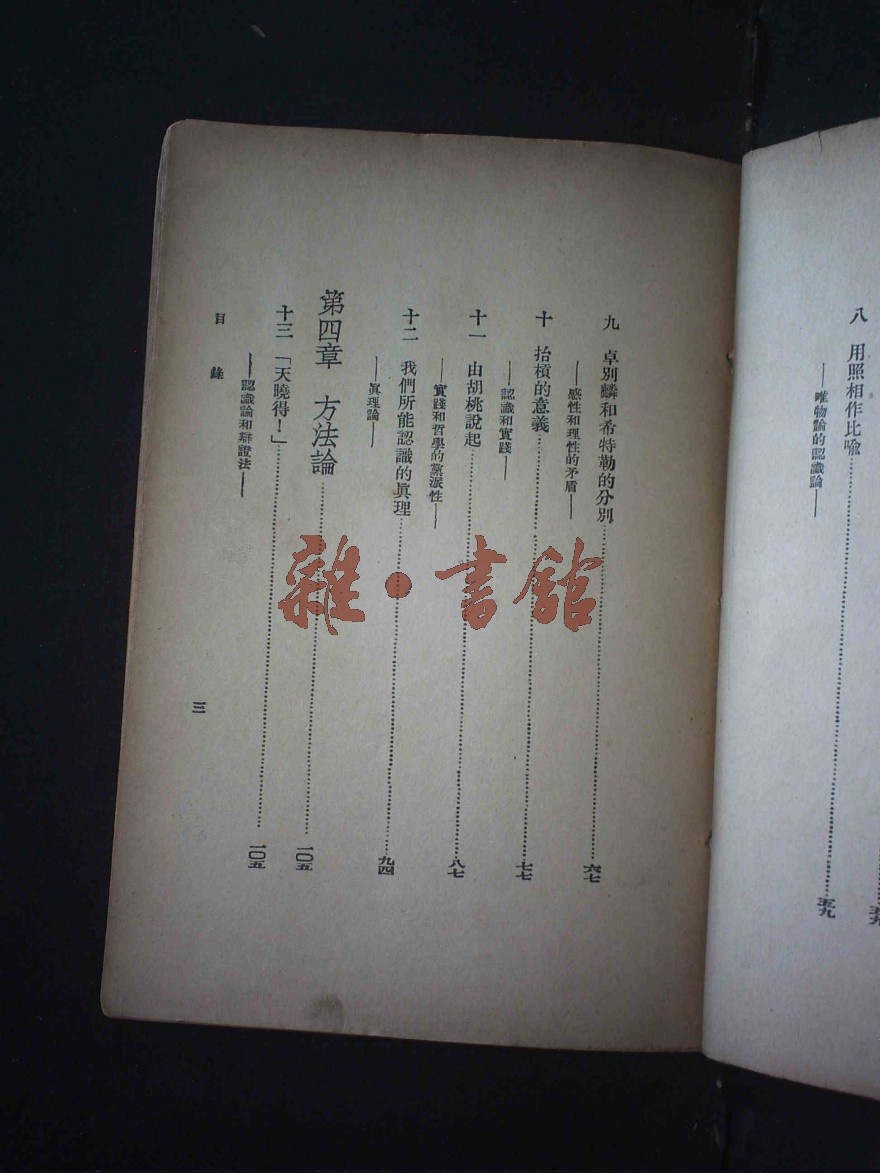 八　用照相作比喻……五九
——唯物論的認識論——
五九
九　卓別麟和希特勒的分別……六七
——感性和理性的矛盾——
十　抬槓的意義……七七
——認識和實踐——
十一　由胡桃說起……八七
——實踐和哲學的黨派性——
十二　我們所能認識的眞理……九四
——眞理論——
第四章　方法論……一〇五
十三　「天曉得！」……一〇五
——認識論和辯證法——
目錄
三
雜·書館